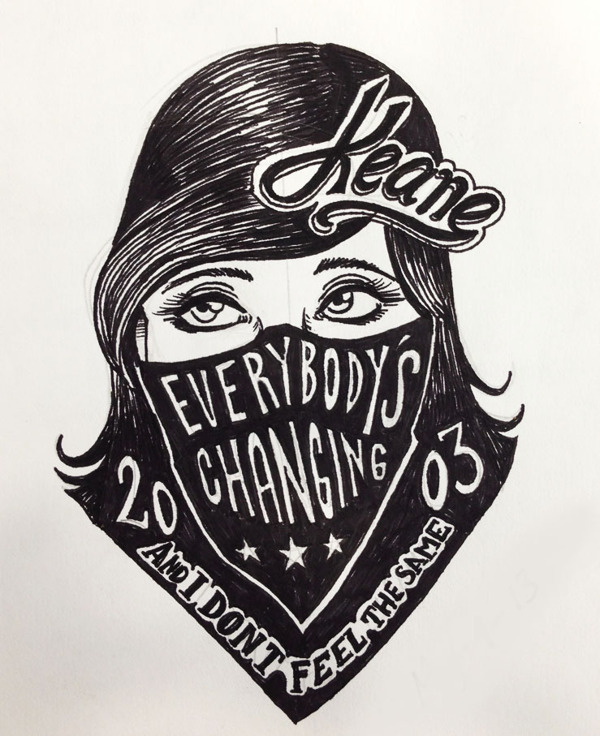 Keane
EVERYBODY'S
CHANGING
20 03
AND I DONT FEEL THE SAME